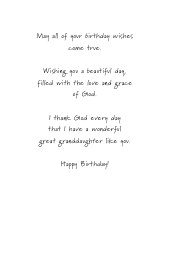 May all of your birthday wishes
come true.
Wishing you a beautiful day,
filled with the love and grace
of God.
I thank God every day
that I have a wonderful
great granddaughter like you.
Happy Birthday!